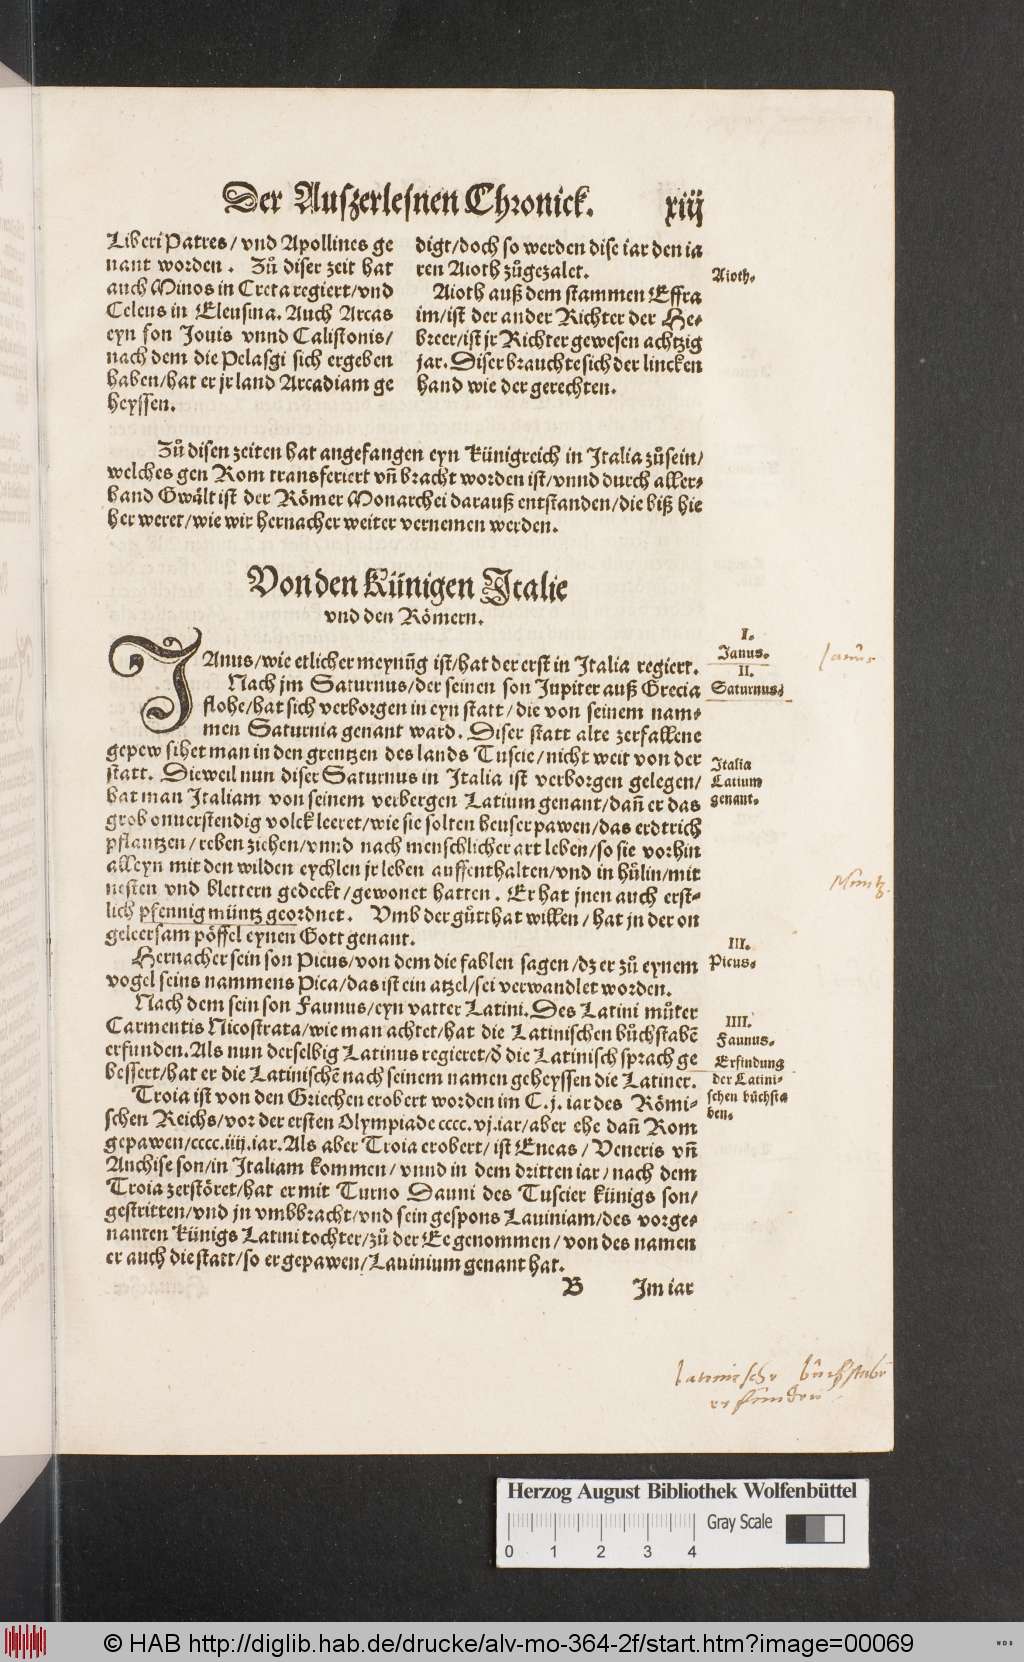 Der Auszerlesnen Chronick. xiij
Liberi Patres/ vnd Apollines ge
nant worden. Zů diser zeit hat
auch Minos in Creta regiert/vnd
Celeus in Eleusina. Auch Arcas
eyn son Jouis vnnd Calistonis/
nach dem die Pelasgi sich ergeben
haben/hat er jr land Arcadiam ge
heyssen.
digt/doch so werden dise iar den ia
ren Aioth zůgezalet.
Aioth auß dem stammen Effra
im/ist der ander Richter der He-
breer/ist jr Richter gewesen achtzig
jar. Diser brauchte sich der lincken
hand wie der gerechten.
Aioth.
Zů disen zeiten hat angefangen eyn künigreich in Italia zůsein/
welches gen Rom transferiert vñ bracht worden ist/vnnd durch aller-
hand Gwält ist der Römer Monarchei darauß entstanden/die biß hie
her weret/wie wir hernacher weiter vernemen werden.
Von den Künigen Italie
vnd den Römern.
JAnus/wie etlicher meynũg ist/hat der erst in Italia regiert.
Nach jm Saturnus/der seinen son Jupiter auß Grecia
flohe/hat sich verborgen in eyn statt/die von seinem nam-
men Saturnia genant ward. Diser statt alte zerfallene
gepew sihet man in den grentzen des lands Tuscie/nicht weit von der
statt. Dieweil nun diser Saturnus in Italia ist verborgen gelegen/
hat man Italiam von seinem verbergen Latium genant/dañ er das
grob onuerstendig volck leeret/wie sie solten heuser pawen/das erdtrich
pflantzen/reben ziehen/vnnd nach menschlicher art leben/so sie vorhin
alleyn mit den wilden eychlen jr leben auffenthalten/vnd in hülin/mit
nesten vnd blettern gedeckt/gewonet hatten. Er hat jnen auch erst-
lich pfennig müntz geordnet. Vmb der gůtthat willen/hat jn der on
geleersam pöffel eynen Gott genant.
Hernacher sein son Picus/von dem die fablen sagen/dz er zů eynem
vogel seins nammens Pica/das ist ein atzel/sei verwandlet worden.
Nach dem sein son Faunus/eyn vatter Latini. Des Latini můter
Carmentis Nicostrata/wie man achtet/hat die Latinischen bůchstabẽ
erfunden. Als nun derselbig Latinus regieret/d̃ die Latinisch sprach ge
bessert/hat er die Latinischẽ nach seinem namen geheyssen die Latiner.
Troia ist von den Griechen erobert worden im C.j. iar des Römi-
schen Reichs/vor der ersten Olympiade cccc.vj.iar/aber ehe dañ Rom
gepawen/cccc.iiij.iar. Als aber Troia erobert/ist Eneas/Veneris vñ
Anchise son/in Italiam kommen/vnnd in dem dritten iar/nach dem
Troia zerstöret/hat er mit Turno Dauni des Tuscier künigs son/
gestritten/vnd jn vmbbracht/vnd sein gespons Lauiniam/des vorge-
nanten künigs Latini tochter/zů der Ee genommen/von des namen
er auch die statt/so er gepawen/Lauinium genant hat.
B Im iar
I.
Janus.
II.
Saturnus.
Italia
Latium
genant.
III.
Picus.
IIII.
Faunus.
Erfindung
der Latini-
schen bůchsta
ben.
Janus
Müntz.
latinische bůchstaben
erfunden
Herzog August Bibliothek Wolfenbüttel
Gray Scale
0 1 2 3 4
© HAB http://diglib.hab.de/drucke/alv-mo-364-2f/start.htm?image=00069